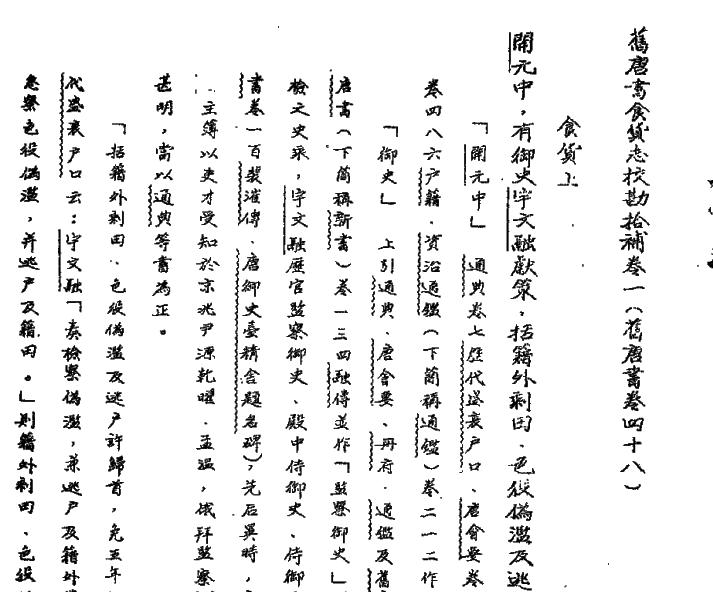 舊唐書食貨志校勘拾補卷一（舊唐書卷四十八）
食貨上
開元中，有御史宇文融獻策，括籍外剩田、色役偽濫及逃
「開元中」 通典卷七歷代盛衰戶口、唐會要卷
卷四八六戶籍、資治通鑑（下簡稱通鑑）卷二一二作
「御史」 上引通典、唐會要、冊府、通鑑及舊
唐書（下簡稱新書）卷一三四融傳並作「監察御史」
檢文史來，宇文融歷官監察御史、殿中侍御史、侍御
書卷一百裴漼傳、唐御史臺精舍題名碑），先后異時，
主簿以吏才受知於京兆尹源乾曜、孟溫，俄拜監察
甚明，當以通典等書為正。
「括籍外剩田、色役偽濫及逃戶許歸首，免五年
代盛衰戶口云：宇文融「奏檢察偽濫，兼逃戶及籍外
急察色役偽濫，并逃戶及籍田。」則籍外剩田、色役